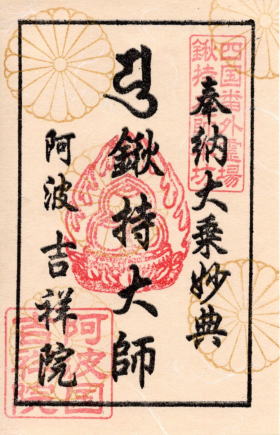 四国番外霊場
奉納大乗妙典
鍬持大師
阿波吉祥院
阿波国
吉祥院